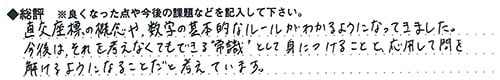 ◆総評 ※良くなった点や今後の課題などを記入して下さい。
直交座標の概念や、数字の基本的なルールがわかるようになってきました。
今後は、それを考えなくてもできる"常識"として身につけることと、応用して問を
解けるようになることだと考えています。